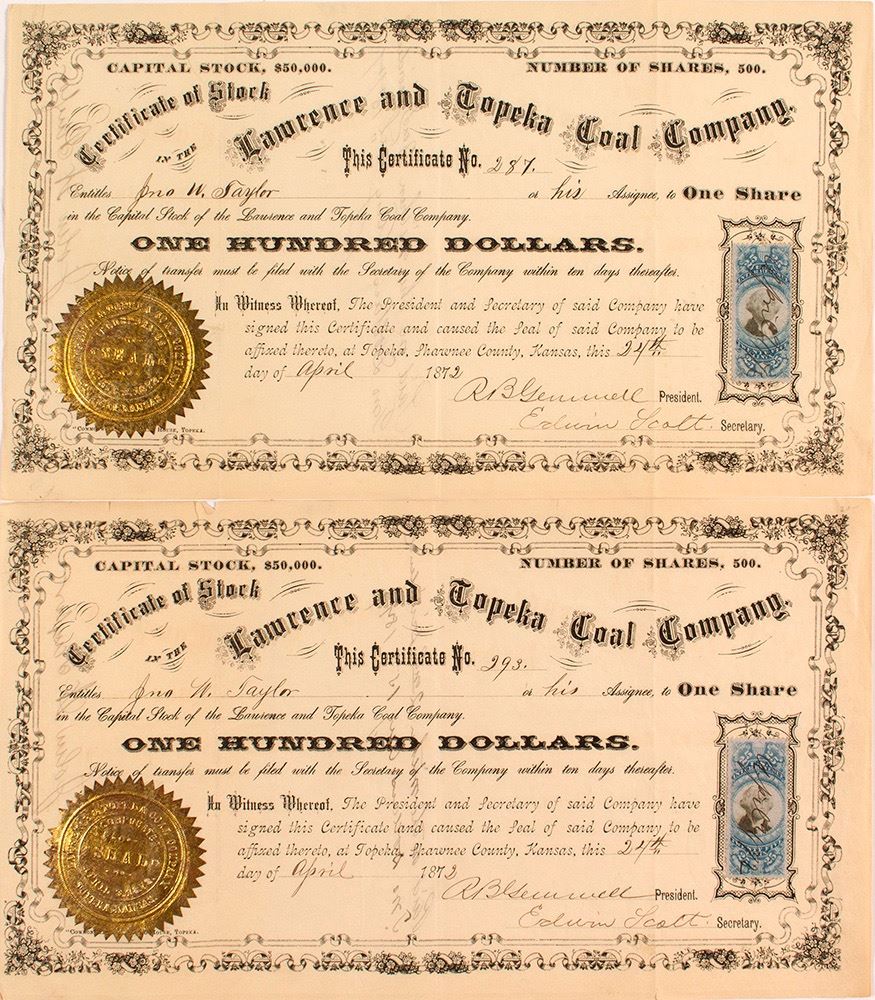 CAPITAL STOCK, $50,000. NUMBER OF SHARES, 500.
Certificate of Stock
IN THE Lawrence and Topeka Coal Company.
This Certificate No. 287.
Entitles Jno W. Taylor or his Assignee, to One Share
in the Capital Stock of the Lawrence and Topeka Coal Company.
ONE HUNDRED DOLLARS.
Notice of transfer must be filed with the Secretary of the Company within ten days thereafter.
In Witness Whereof, The President and Secretary of said Company have
signed this Certificate and caused the Seal of said Company to be
affixed thereto, at Topeka, Shawnee County, Kansas, this 24th
day of April 1872
R B Gemmell President.
Edwin Scott. Secretary.
SEAL
HOUSE, TOPEKA.
CAPITAL STOCK, $50,000. NUMBER OF SHARES, 500.
Certificate of Stock
IN THE Lawrence and Topeka Coal Company.
This Certificate No. 293.
Entitles Jno W. Taylor or his Assignee, to One Share
in the Capital Stock of the Lawrence and Topeka Coal Company.
ONE HUNDRED DOLLARS.
Notice of transfer must be filed with the Secretary of the Company within ten days thereafter.
In Witness Whereof, The President and Secretary of said Company have
signed this Certificate and caused the Seal of said Company to be
affixed thereto, at Topeka, Shawnee County, Kansas, this 24th
day of April 1872
R B Gemmell President.
Edwin Scott Secretary.
SEAL
HOUSE, TOPEKA.